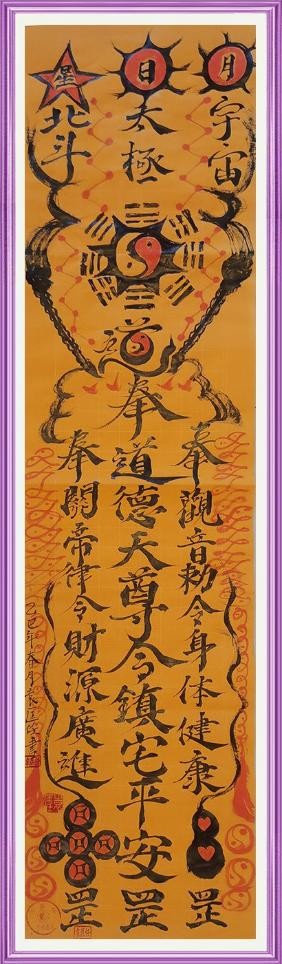 月
日
星
宇宙
太極
北斗
道
奉觀音勅令身体健康
罡
奉道德天尊令鎮宅平安
罡
奉關帝律令財源廣進
罡
乙巳年春月